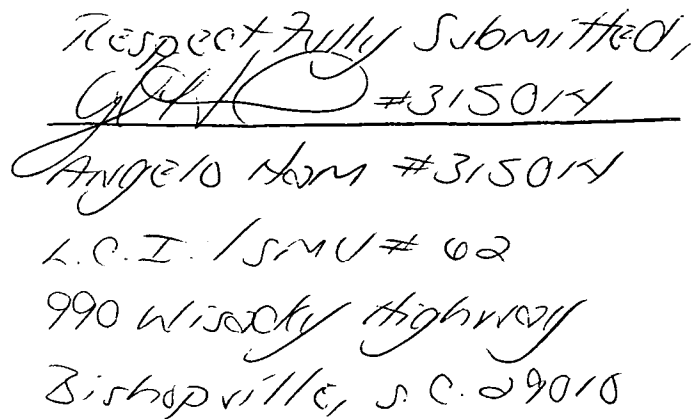 Respectfully Submitted,
#315014
Angelo Ham #315014
L.C.I. / SMU # 62
990 Wisacky Highway
Bishopville, S.C. 29010